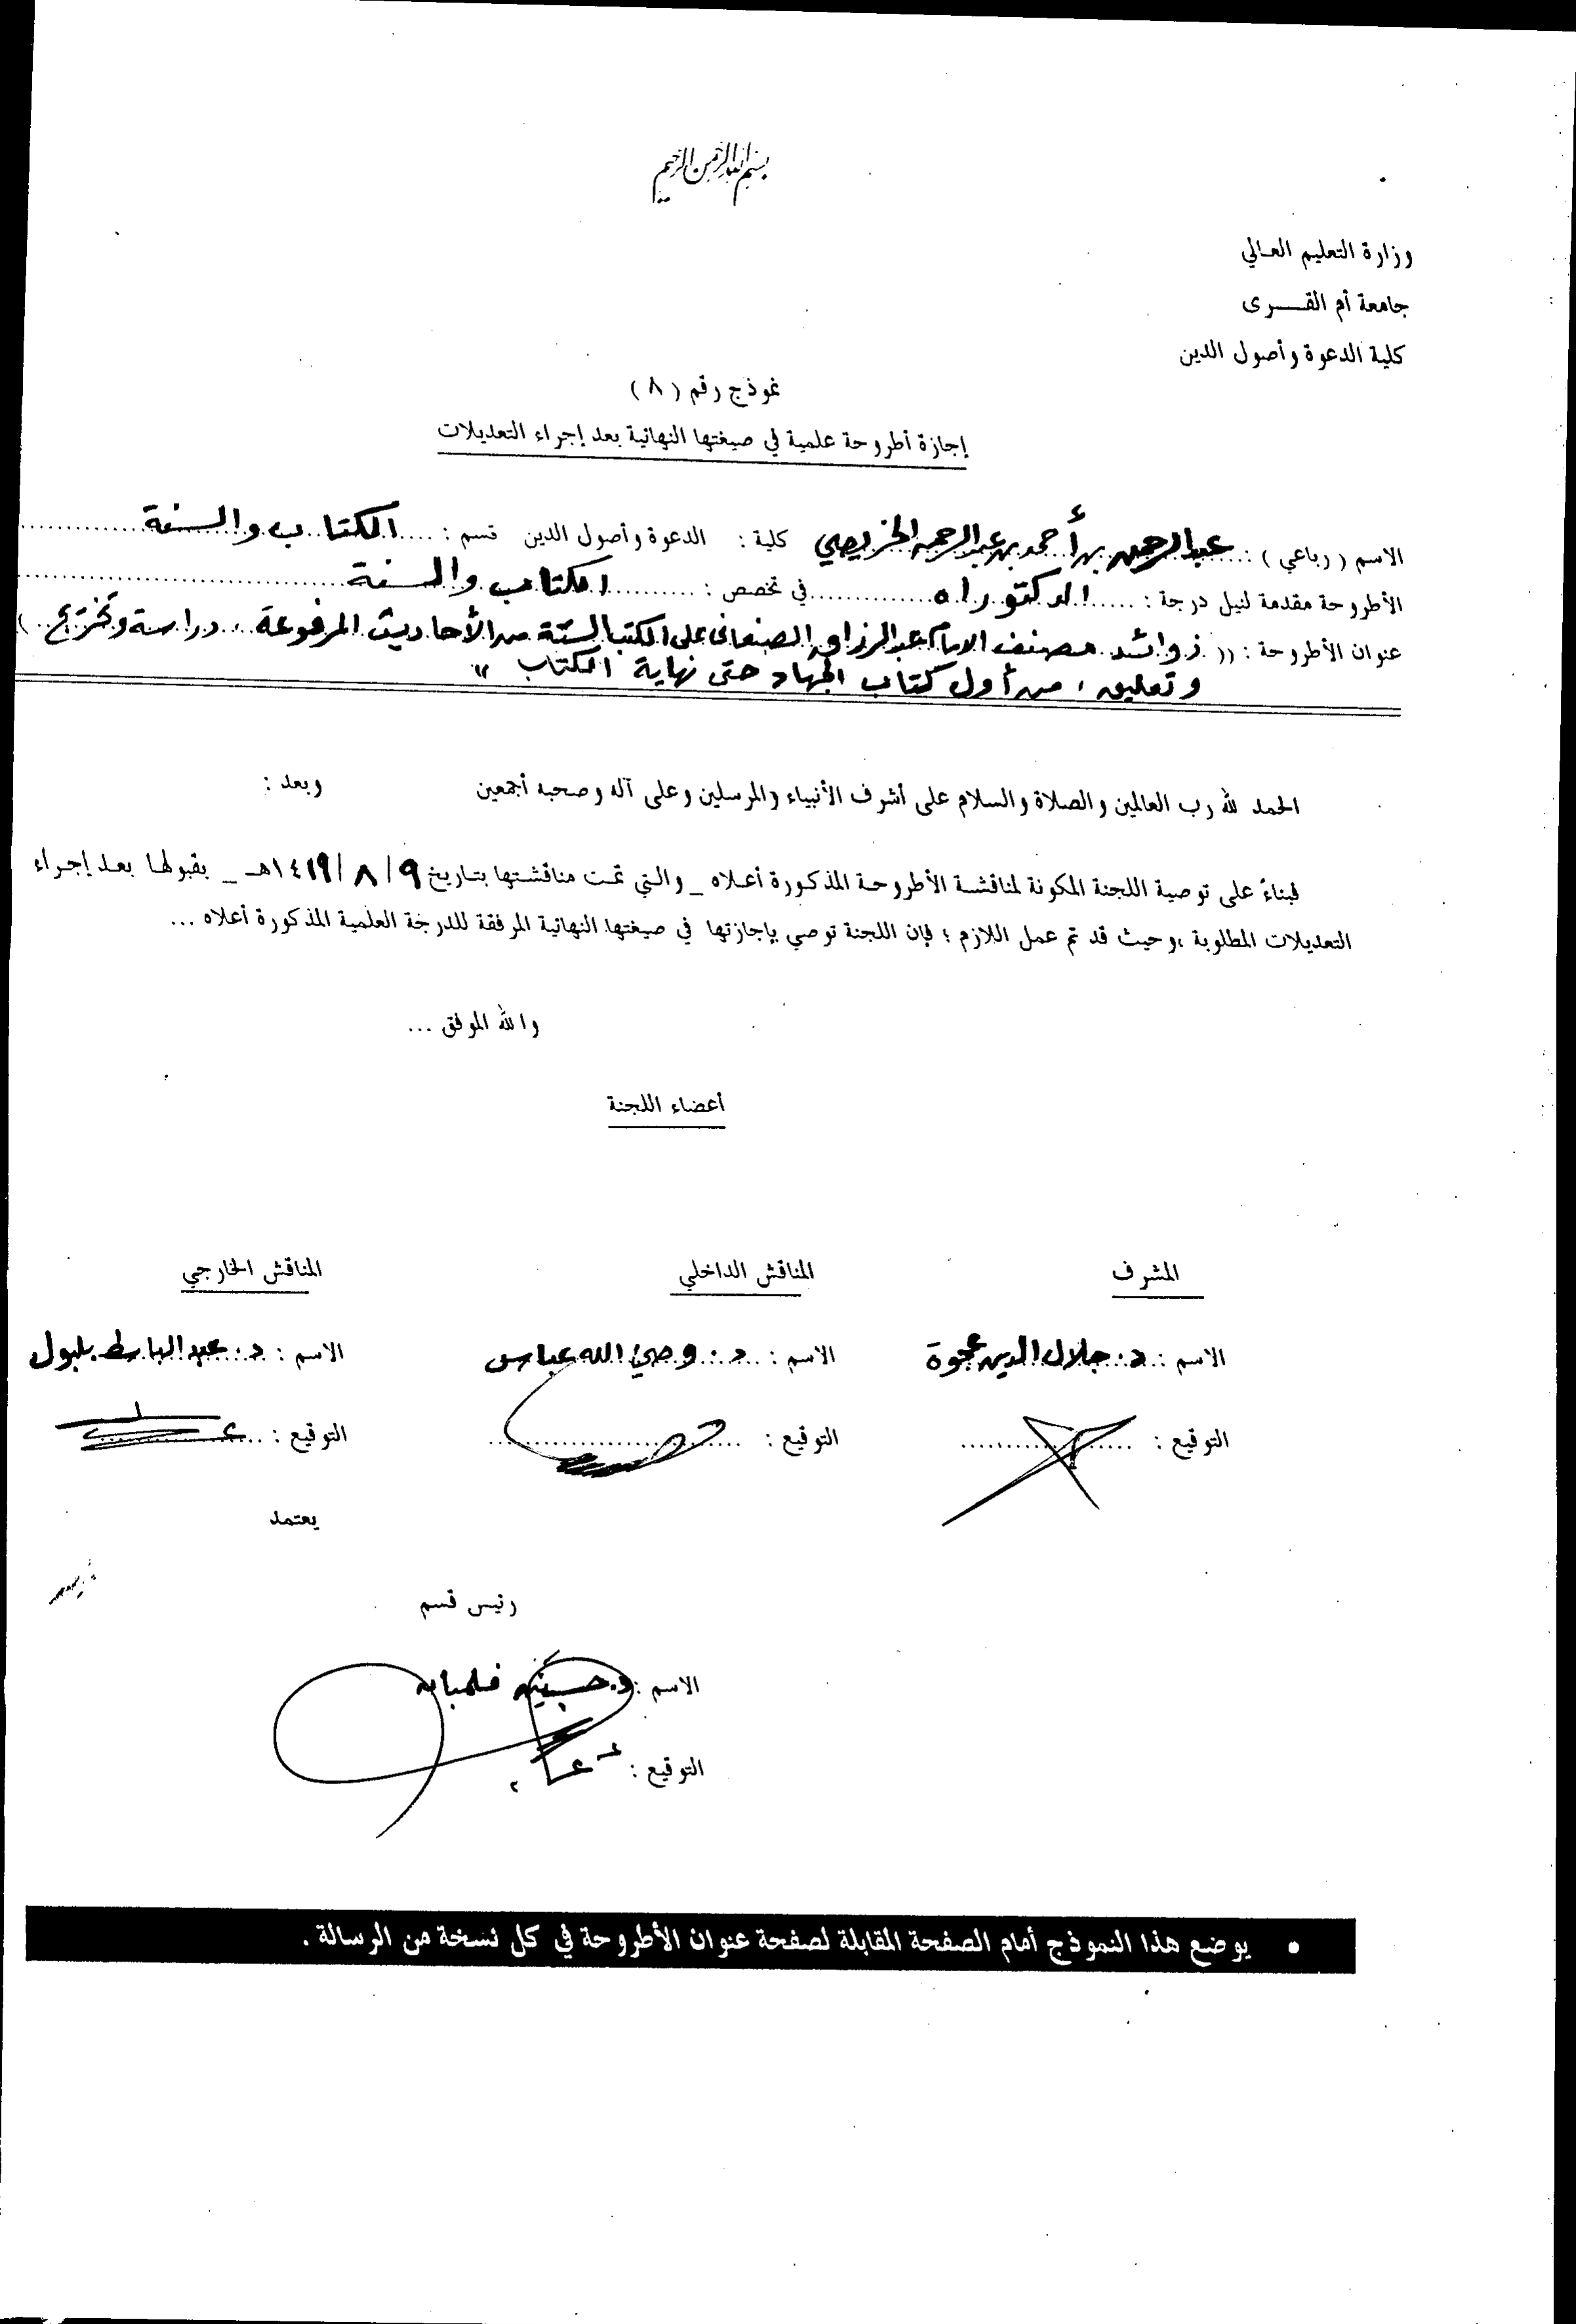 بسم الله الرحمن الرحيم
وزارة التعليم العالي
جامعة أم القــرى
كلية الدعوة وأصول الدين
نموذج رقم ( ٨ )
إجازة أطروحة علمية في صيغتها النهائية بعد إجراء التعديلات
الاسم ( رباعي ) : عبدالرحمن بن أحمد بن عبدالرحمن الخريصي كلية : الدعوة وأصول الدين قسم : الكتاب والسنة
الأطروحة مقدمة لنيل درجة : الدكتوراه في تخصص : الكتاب والسنة
عنوان الأطروحة : (( زوائد مصنف الامام عبدالرزاق الصنعاني على الكتب الستة من الأحاديث المرفوعة ، دراسة وتخريج )
وتعليق ، من أول كتاب الجهاد حتى نهاية الكتاب "
الحمد لله رب العالمين والصلاة والسلام على أشرف الأنبياء والمرسلين وعلى آله وصحبه أجمعين وبعد :
فبناءً على توصية اللجنة المكونة لمناقشة الأطروحة المذكورة أعلاه _ والتي تمت مناقشتها بتاريخ ٩ / ٨ / ١٤١٩هـ _ بقبولها بعد إجراء
التعديلات المطلوبة ،وحيث قد تم عمل اللازم ؛ فإن اللجنة توصي بإجازتها في صيغتها النهائية المرفقة للدرجة العلمية المذكورة أعلاه ...
والله الموفق ...
أعضاء اللجنة
المشرف المناقش الداخلي المناقش الخارجي
الاسم : د. جلال الدين عجوة الاسم : د. وصي الله عباس الاسم : د. عبد الباسط بلبول
التوقيع : التوقيع : التوقيع :
يعتمد
رئيس قسم
الاسم : د. حسين فلمبان
التوقيع :
• يوضع هذا النموذج أمام الصفحة المقابلة لصفحة عنوان الأطروحة في كل نسخة من الرسالة .